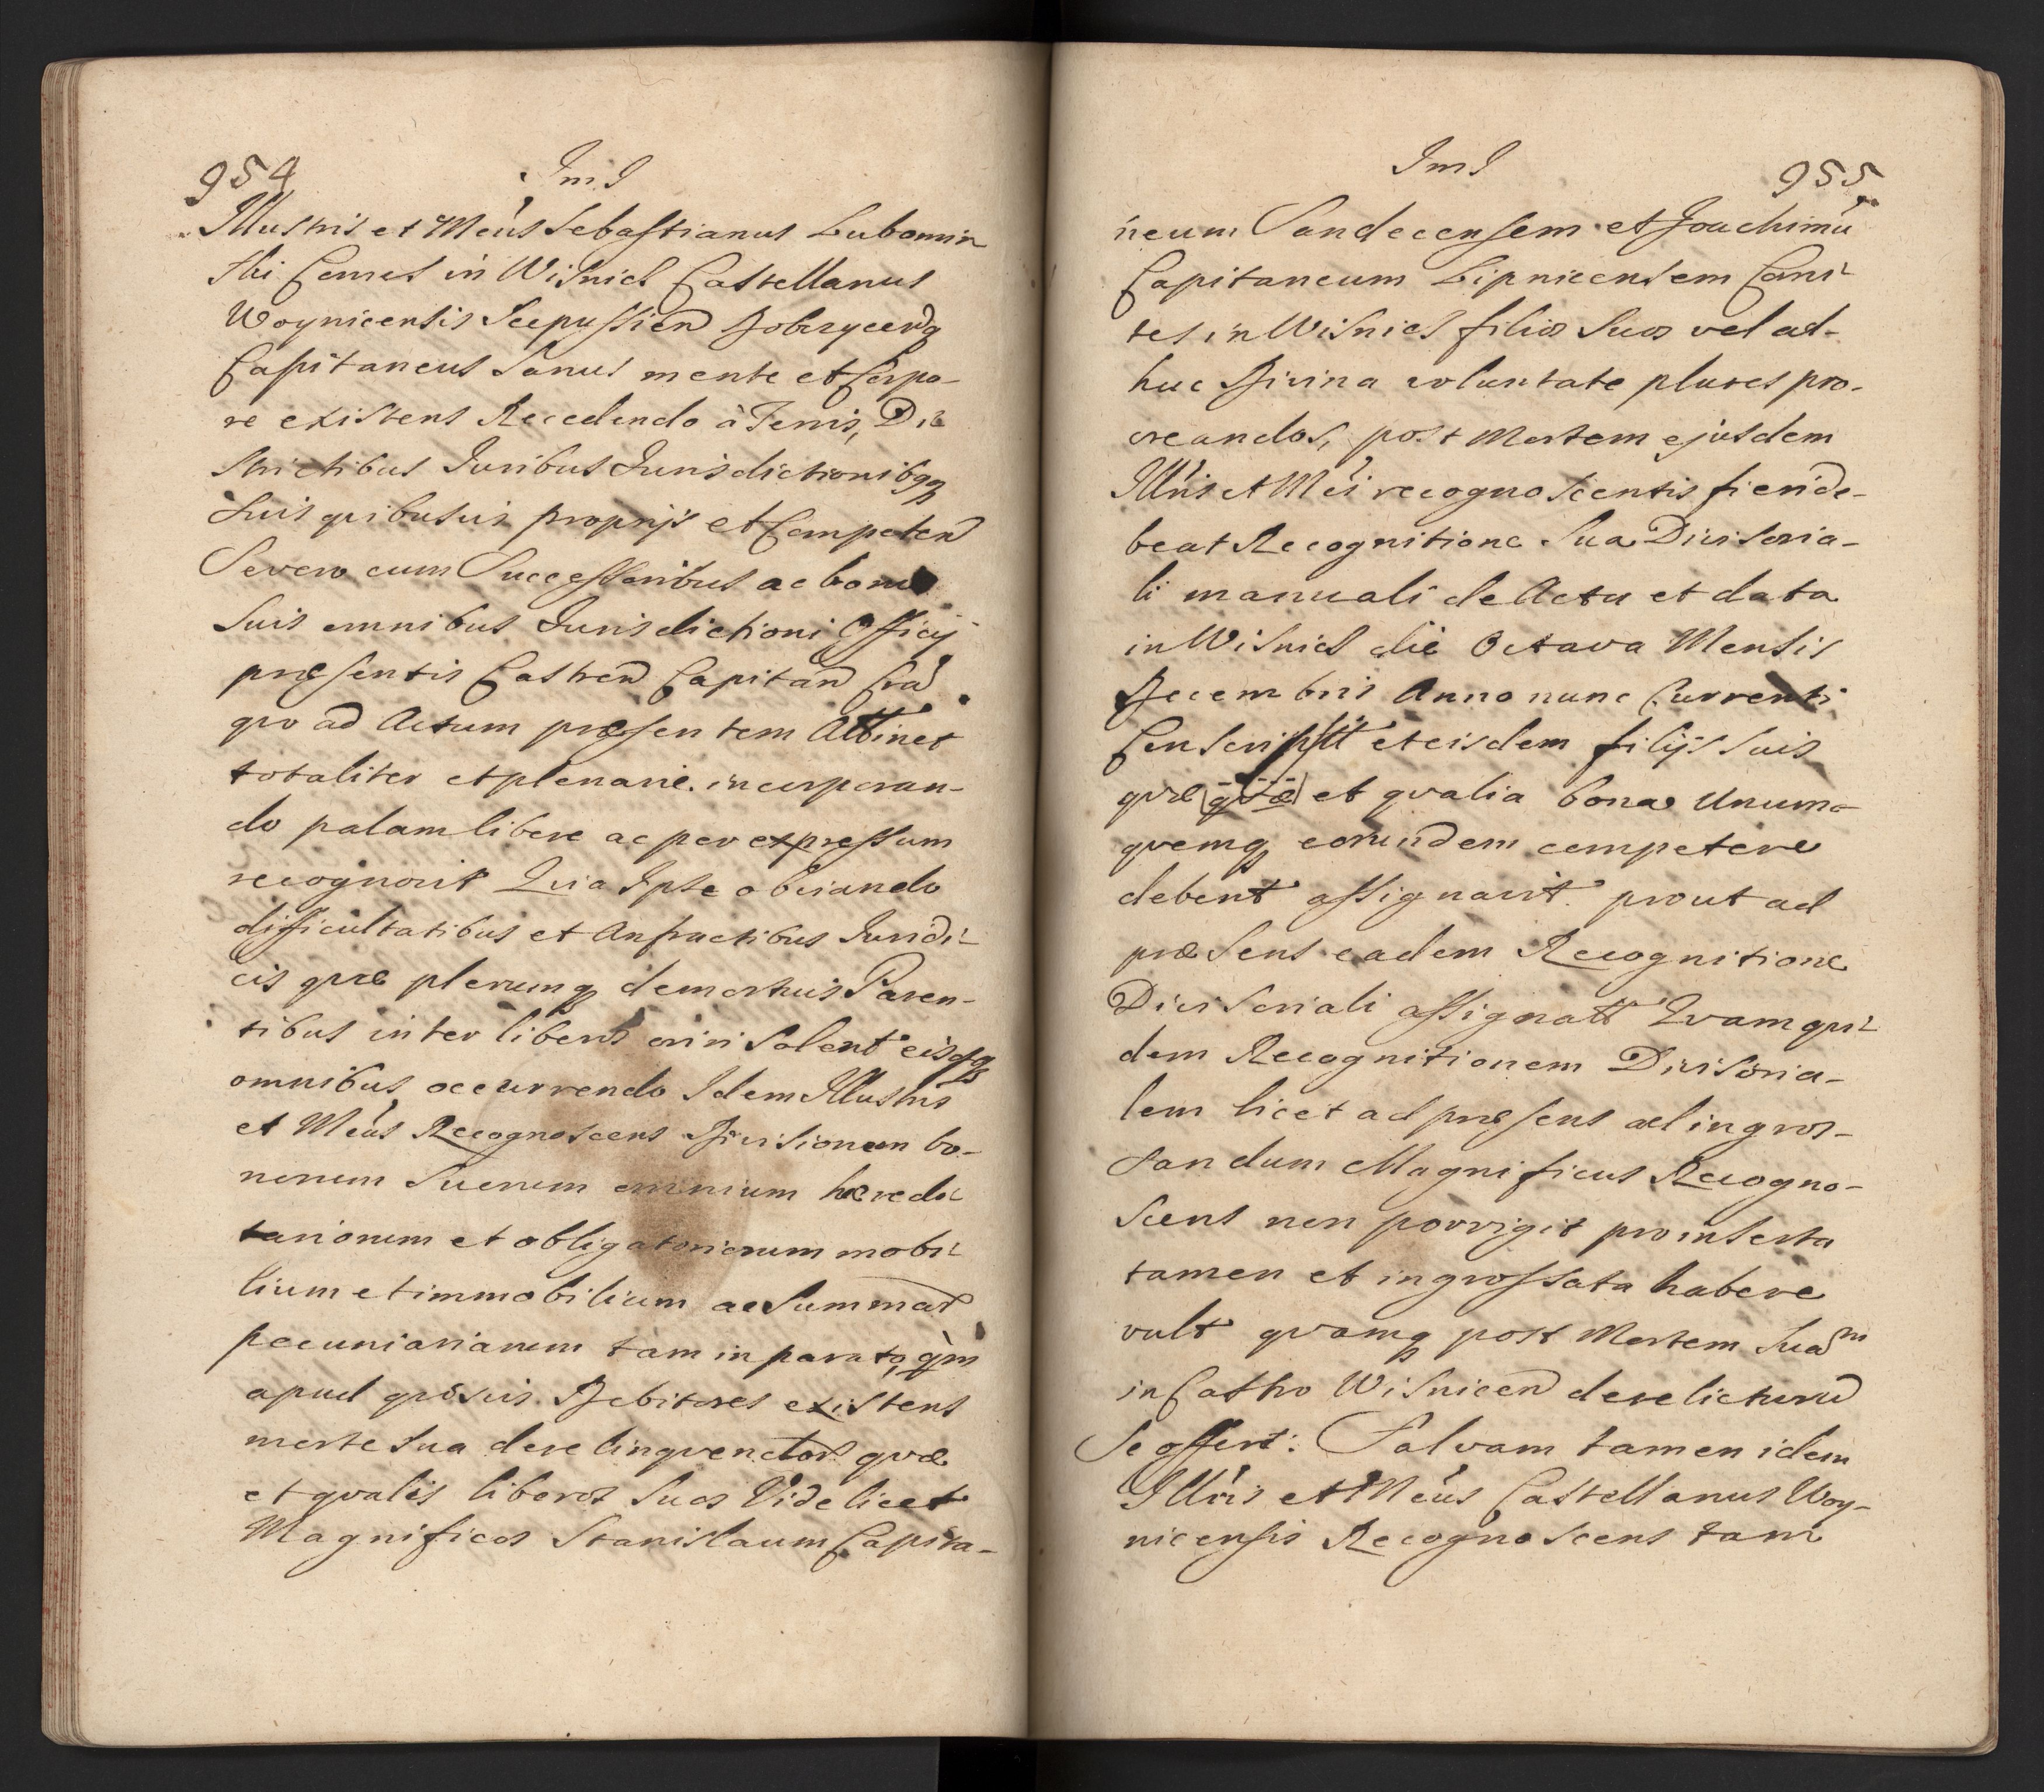 954
JmJ
Illustris et Mcus Sebastianus Lubomir
ski Comes in Wisnicz Castellanus
Woynicensis Scepussien Dobczycenq
Capitaneus Sanus mente et Corpo-
re existens Recedendo à Terris, Di-
strictibus Juribus Jurisdictionibqq
suis quibusvis proprijs et Competen
Severo cum Successoribus ac bonis
suis omnibus Jurisdictioni Officij
præsentis Castren Capitan Cra
qvo ad Actum præsentem Attinet
totaliter et plenarie incorporan-
do palam libere ac per expressum
recognovit Qvia Ipse obviando
difficultatibus et Anfractibus Juridi-
cis qvæ plerumq demortuis Paren-
tibus inter liberos oriri Solent eisqq
omnibus occurrendo Idem Illustris
et Mcus Recognoscens Divisionem bo-
norum Suorum omnium hæredi-
tariorum et obligatoriorum mobi-
lium et immobilium ac Summar
pecuniariarum tam in parato, qm
apud qvosvis Debitores existens
morte sua derelinqvendor qvæ
et qvalis liberos Suos Videlicet
Magnificos Stanislaum Capita-
JmJ
955
neum Sandecensem et Joachimu
Capitaneum Lipnicensem Comi-
tes in Wisnicz filios Suos vel ad-
huc Divina voluntate plures pro-
creandos, post Mortem ejusdem
Illris et Mci recognoscentis fieri de-
beat Recognitione Sua Divisoria-
li manuali de Actu et data
in Wisnicz die Octava Mensis
Decembris Anno nunc Currenti
Conscripsit et eisdem filijs suis
qvæ (qvæ) et qvalia bona Unum-
qvemq eorundem competere
debent assignavit prout ad
præsens eadem Recognitione
Divisoriali assignatt Qvam qvi-
dem Recognitionem Divisoria-
lem licet ad præsens ad ingros-
sandum Magnificus Recogno-
scens non porrigit pro inserta
tamen et ingrossata habere
vult qvamq post Mortem Suam
in Castro Wisnicen derelicturu
Se offert: Salvam tamen idem
Illris et Mcus Castellanus Woy-
nicensis Recognoscens tam